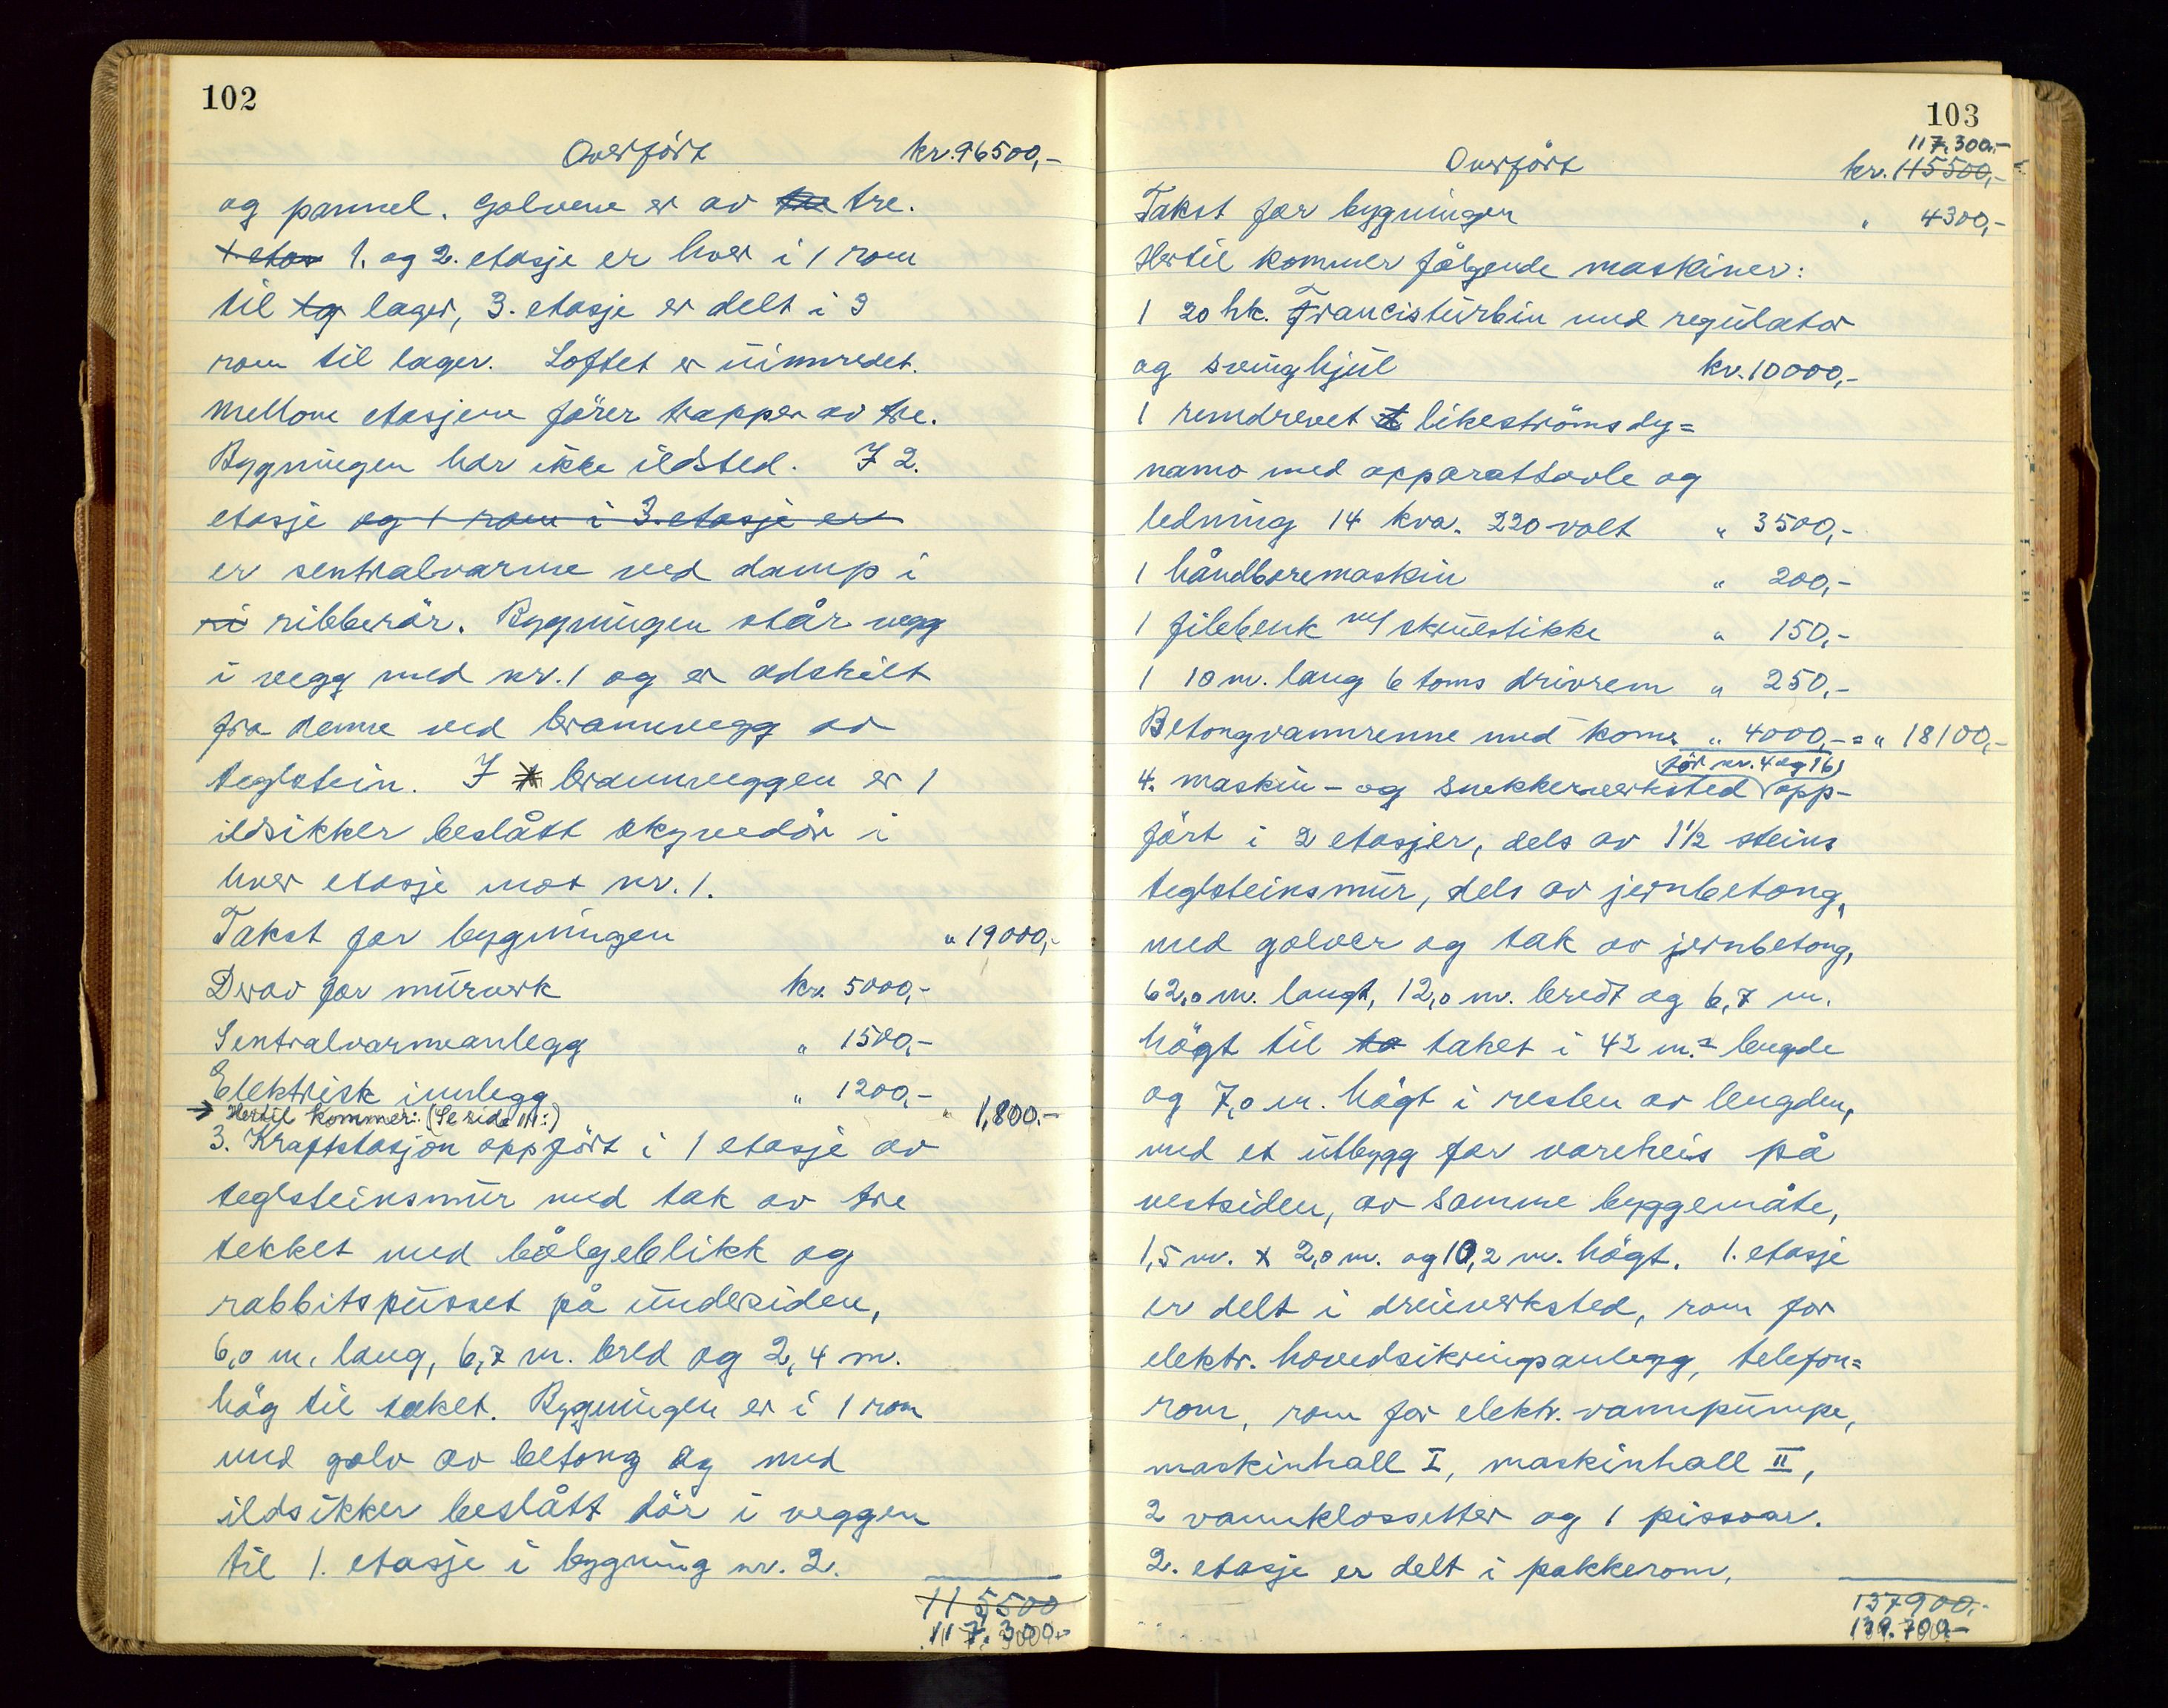 102
Overført kr. 96500,-
og pannel. Golvene er av tre tre.
1. etas 1. og 2. etasje er hver i 1 rom
til lager, 3. etasje er delt i 3
rom til lager. Loftet er uinnredet.
Mellom etasjene fører trapper av tre.
Bygningen har ikke ildsted. I 2.
etasje og 1 rom i 3. etasje er
er sentralvarme ved damp i
ri ribberør. Bygningen står vegg
i vegg med nr. 1 og er adskilt
fra denne ved brannvegg av
teglstein. I brannveggen er 1
ildsikker beslått skyvedør i
hver etasje mot nr. 1.
Takst for bygningen " 19000,-
Derav for murverk kr. 5000,-
Sentralvarmeanlegg " 1500,-
Elektrisk innlegg " 1200,-
→ Hertil kommer: (Se side 111:) " 1,800.-
3. Kraftstasjon oppført i 1 etasje av
teglsteinsmur med tak av tre
tekket med bølgeblikk og
rabbitspusset på undersiden,
6,0 m. lang, 6,7 m. bred og 2,4 m.
høg til taket. Bygningen er i 1 rom
med golv av betong og med
ildsikker beslått dør i veggen
til 1. etasje i bygning nr. 2.
115500
117.300.-
103
117.300.-
Overført kr. 115500,-
Takst for bygningen " 4300,-
Hertil kommer følgende maskiner:
1 20 hk. Francisturbin med regulator
og svinghjul kr. 10000,-
1 remdrevet likestrømsdy=
namo med apparattavle og
ledning 14 kva. 220 volt " 3500,-
1 håndboremaskin " 200,-
1 filebenk m/ skruestikke " 150,-
1 10 m. lang 6 toms drivrem " 250,-
Betongvannrenne med kom. " 4000,- = " 18100,-
(før nr. 4 og 16)
4. Maskin- og snekkerverksted opp-
ført i 2 etasjer, dels av 1½ steins
teglsteinsmur, dels av jernbetong,
med golver og tak av jernbetong,
62,0 m. langt, 12,0 m. bredt og 6,7 m.
høgt til ta taket i 42 m.s lengde
og 7,0 m. høgt i resten av lengden,
med et utbygg for vareheis på
vestsiden, av samme byggemåte,
1,5 m. x 2,0 m. og 10,2 m. høgt. 1. etasje
er delt i dreieverksted, rom for
elektr. hovedsikringsanlegg, telefon=
rom, rom for elektr. vannpumpe,
maskinhall I, maskinhall II,
2 vannklossetter og 1 pissoar.
2. etasje er delt i pakkerom,
137900.-
139.700.-